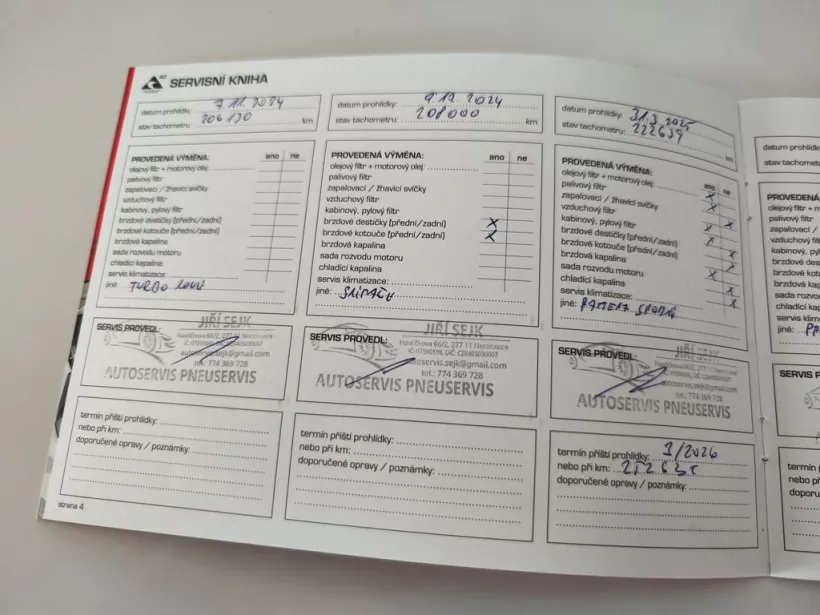 SERVISNÍ KNIHA
datum prohlídky: 7.11.2024
stav tachometru: 206130 km
PROVEDENÁ VÝMĚNA: ano ne
olejový filtr + motorový olej:
palivový filtr
zapalovací / žhavicí svíčky
vzduchový filtr
kabinový, pylový filtr
brzdové destičky (přední/zadní)
brzdové kotouče (přední/zadní)
brzdová kapalina
sada rozvodu motoru
chladící kapalina
servis klimatizace:
jiné: TURBO
SERVIS PROVEDL:
JIŘÍ SEJK
Havlíčkova 66/2, 277 11 Neratovice
autoservis.sejk@gmail.com
tel.: 774 369 728
AUTOSERVIS PNEUSERVIS
termín příští prohlídky:
nebo při km:
doporučené opravy / poznámky:
strana 4
datum prohlídky: 9.12.2024
stav tachometru: 208000 km
PROVEDENÁ VÝMĚNA: ano ne
olejový filtr + motorový olej:
palivový filtr
zapalovací / žhavicí svíčky
vzduchový filtr
kabinový, pylový filtr
brzdové destičky (přední/zadní) X
brzdové kotouče (přední/zadní) X
brzdová kapalina
sada rozvodu motoru
chladící kapalina
servis klimatizace:
jiné: SNÍMAČE
SERVIS PROVEDL:
JIŘÍ SEJK
Havlíčkova 66/2, 277 11 Neratovice
autoservis.sejk@gmail.com
tel.: 774 369 728
AUTOSERVIS PNEUSERVIS
termín příští prohlídky:
nebo při km:
doporučené opravy / poznámky:
datum prohlídky: 31.3.2025
stav tachometru: 222639 km
PROVEDENÁ VÝMĚNA: ano ne
olejový filtr + motorový olej: X
palivový filtr X
zapalovací / žhavicí svíčky
vzduchový filtr X
kabinový, pylový filtr X
brzdové destičky (přední/zadní)
brzdové kotouče (přední/zadní)
brzdová kapalina
sada rozvodu motoru
chladící kapalina
servis klimatizace:
jiné: RAMENA SPODNÍ
SERVIS PROVEDL:
JIŘÍ SEJK
Havlíčkova 66/2, 277 11 Neratovice
autoservis.sejk@gmail.com
tel.: 774 369 728
AUTOSERVIS PNEUSERVIS
termín příští prohlídky: 3/2026
nebo při km: 252635
doporučené opravy / poznámky: